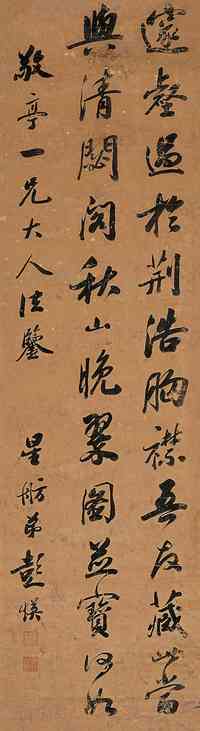 邃壑過於荆浩胸襟吾友藏此當
與清閟阁秋山晚翠圖並寶何如
敬亭一兄大人法鑒
星舫弟彭